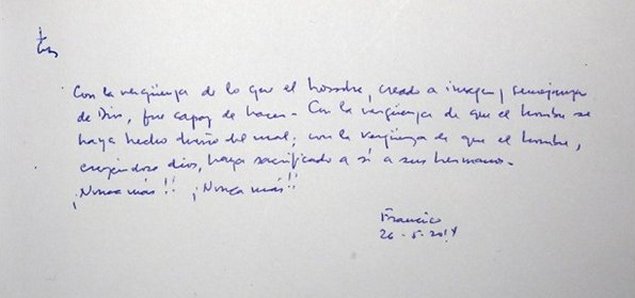 Con la vergüenza de lo que el hombre, creado a imagen y semejanza
de Dios, fue capaz de hacer. Con la vergüenza de que el hombre se
haya hecho dueño del mal; con la vergüenza de que el hombre,
creyéndose dios, haya sacrificado a sí a sus hermanos.
¡Nunca más!! ¡Nunca más!!
Francisco
26-5-2014